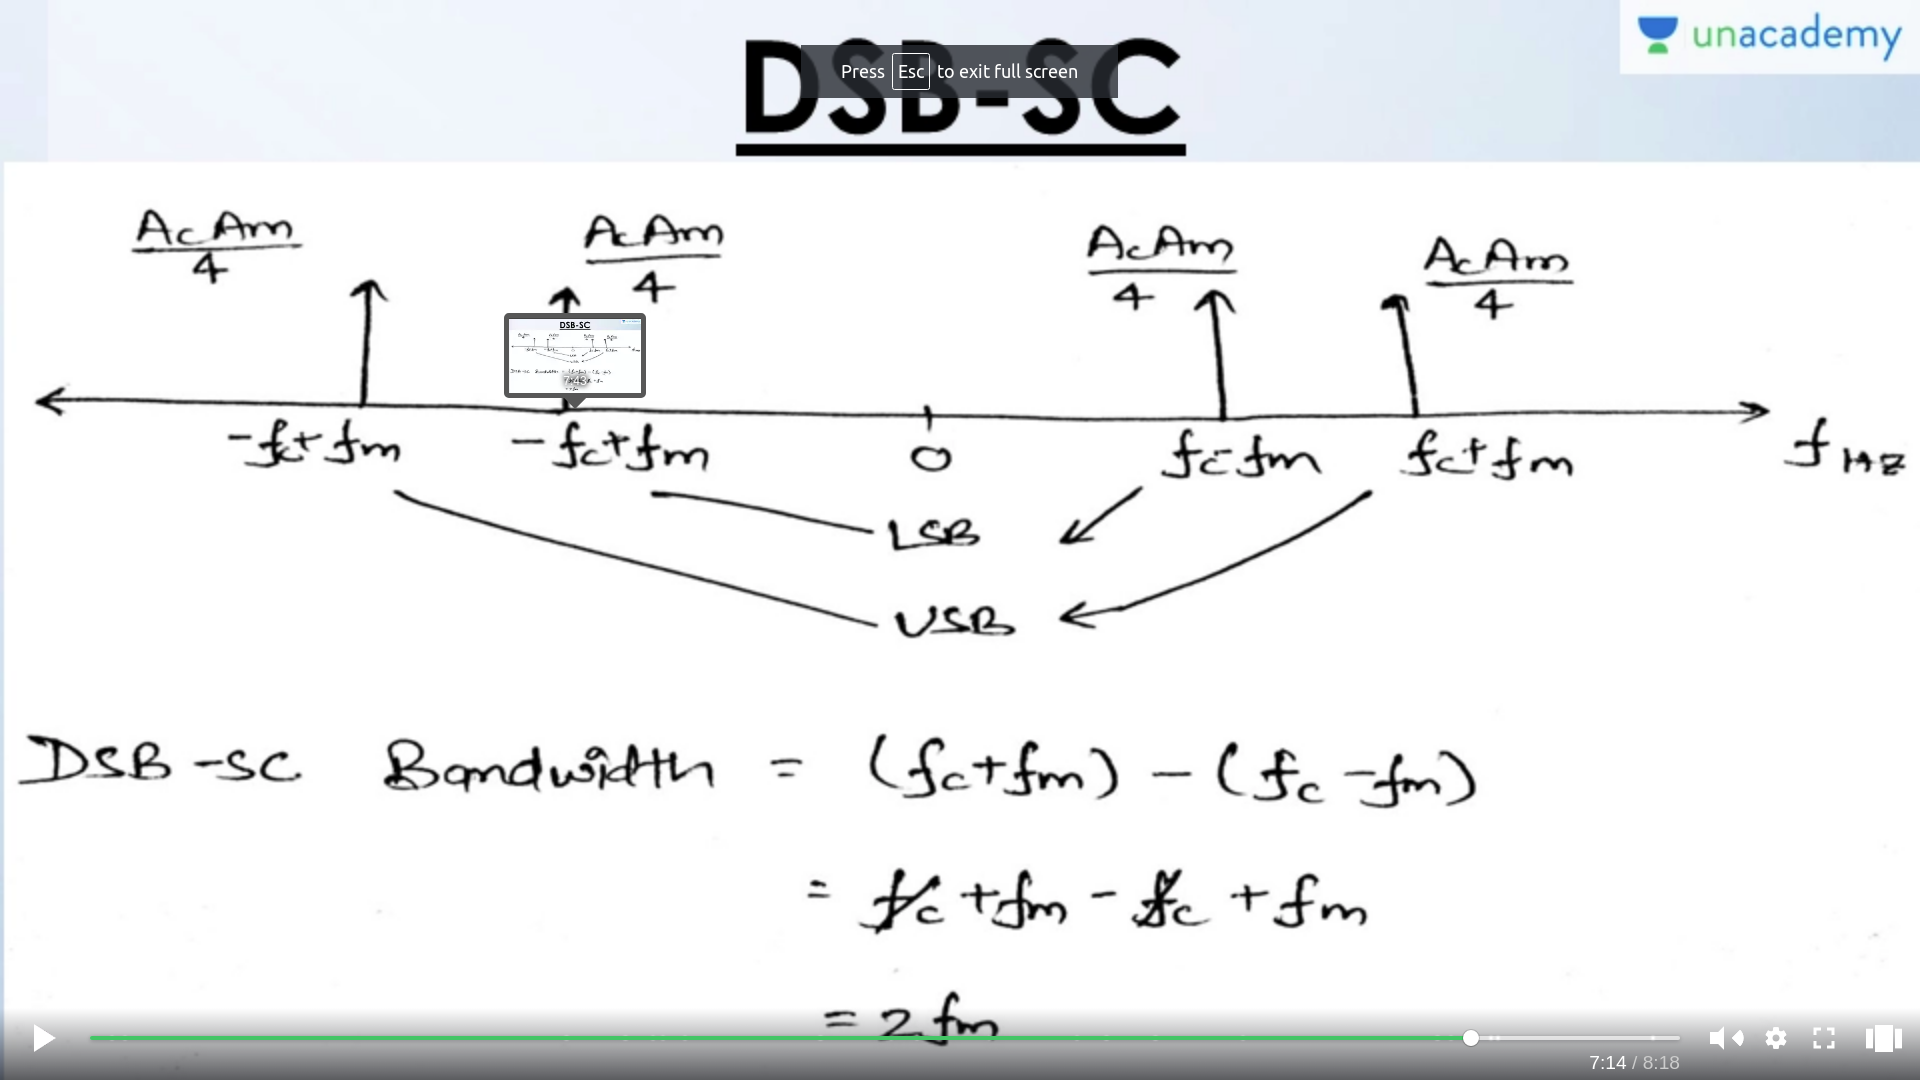 unacademy
DSB-SC
Press Esc to exit full screen
AcAm/4 AcAm/4 AcAm/4 AcAm/4
-fc+fm -fc+fm 0 fc-fm fc+fm f Hz
LSB
USB
DSB-SC Bandwidth = (fc+fm) - (fc-fm)
= fc+fm - fc+fm
= 2fm
7:14 / 8:18